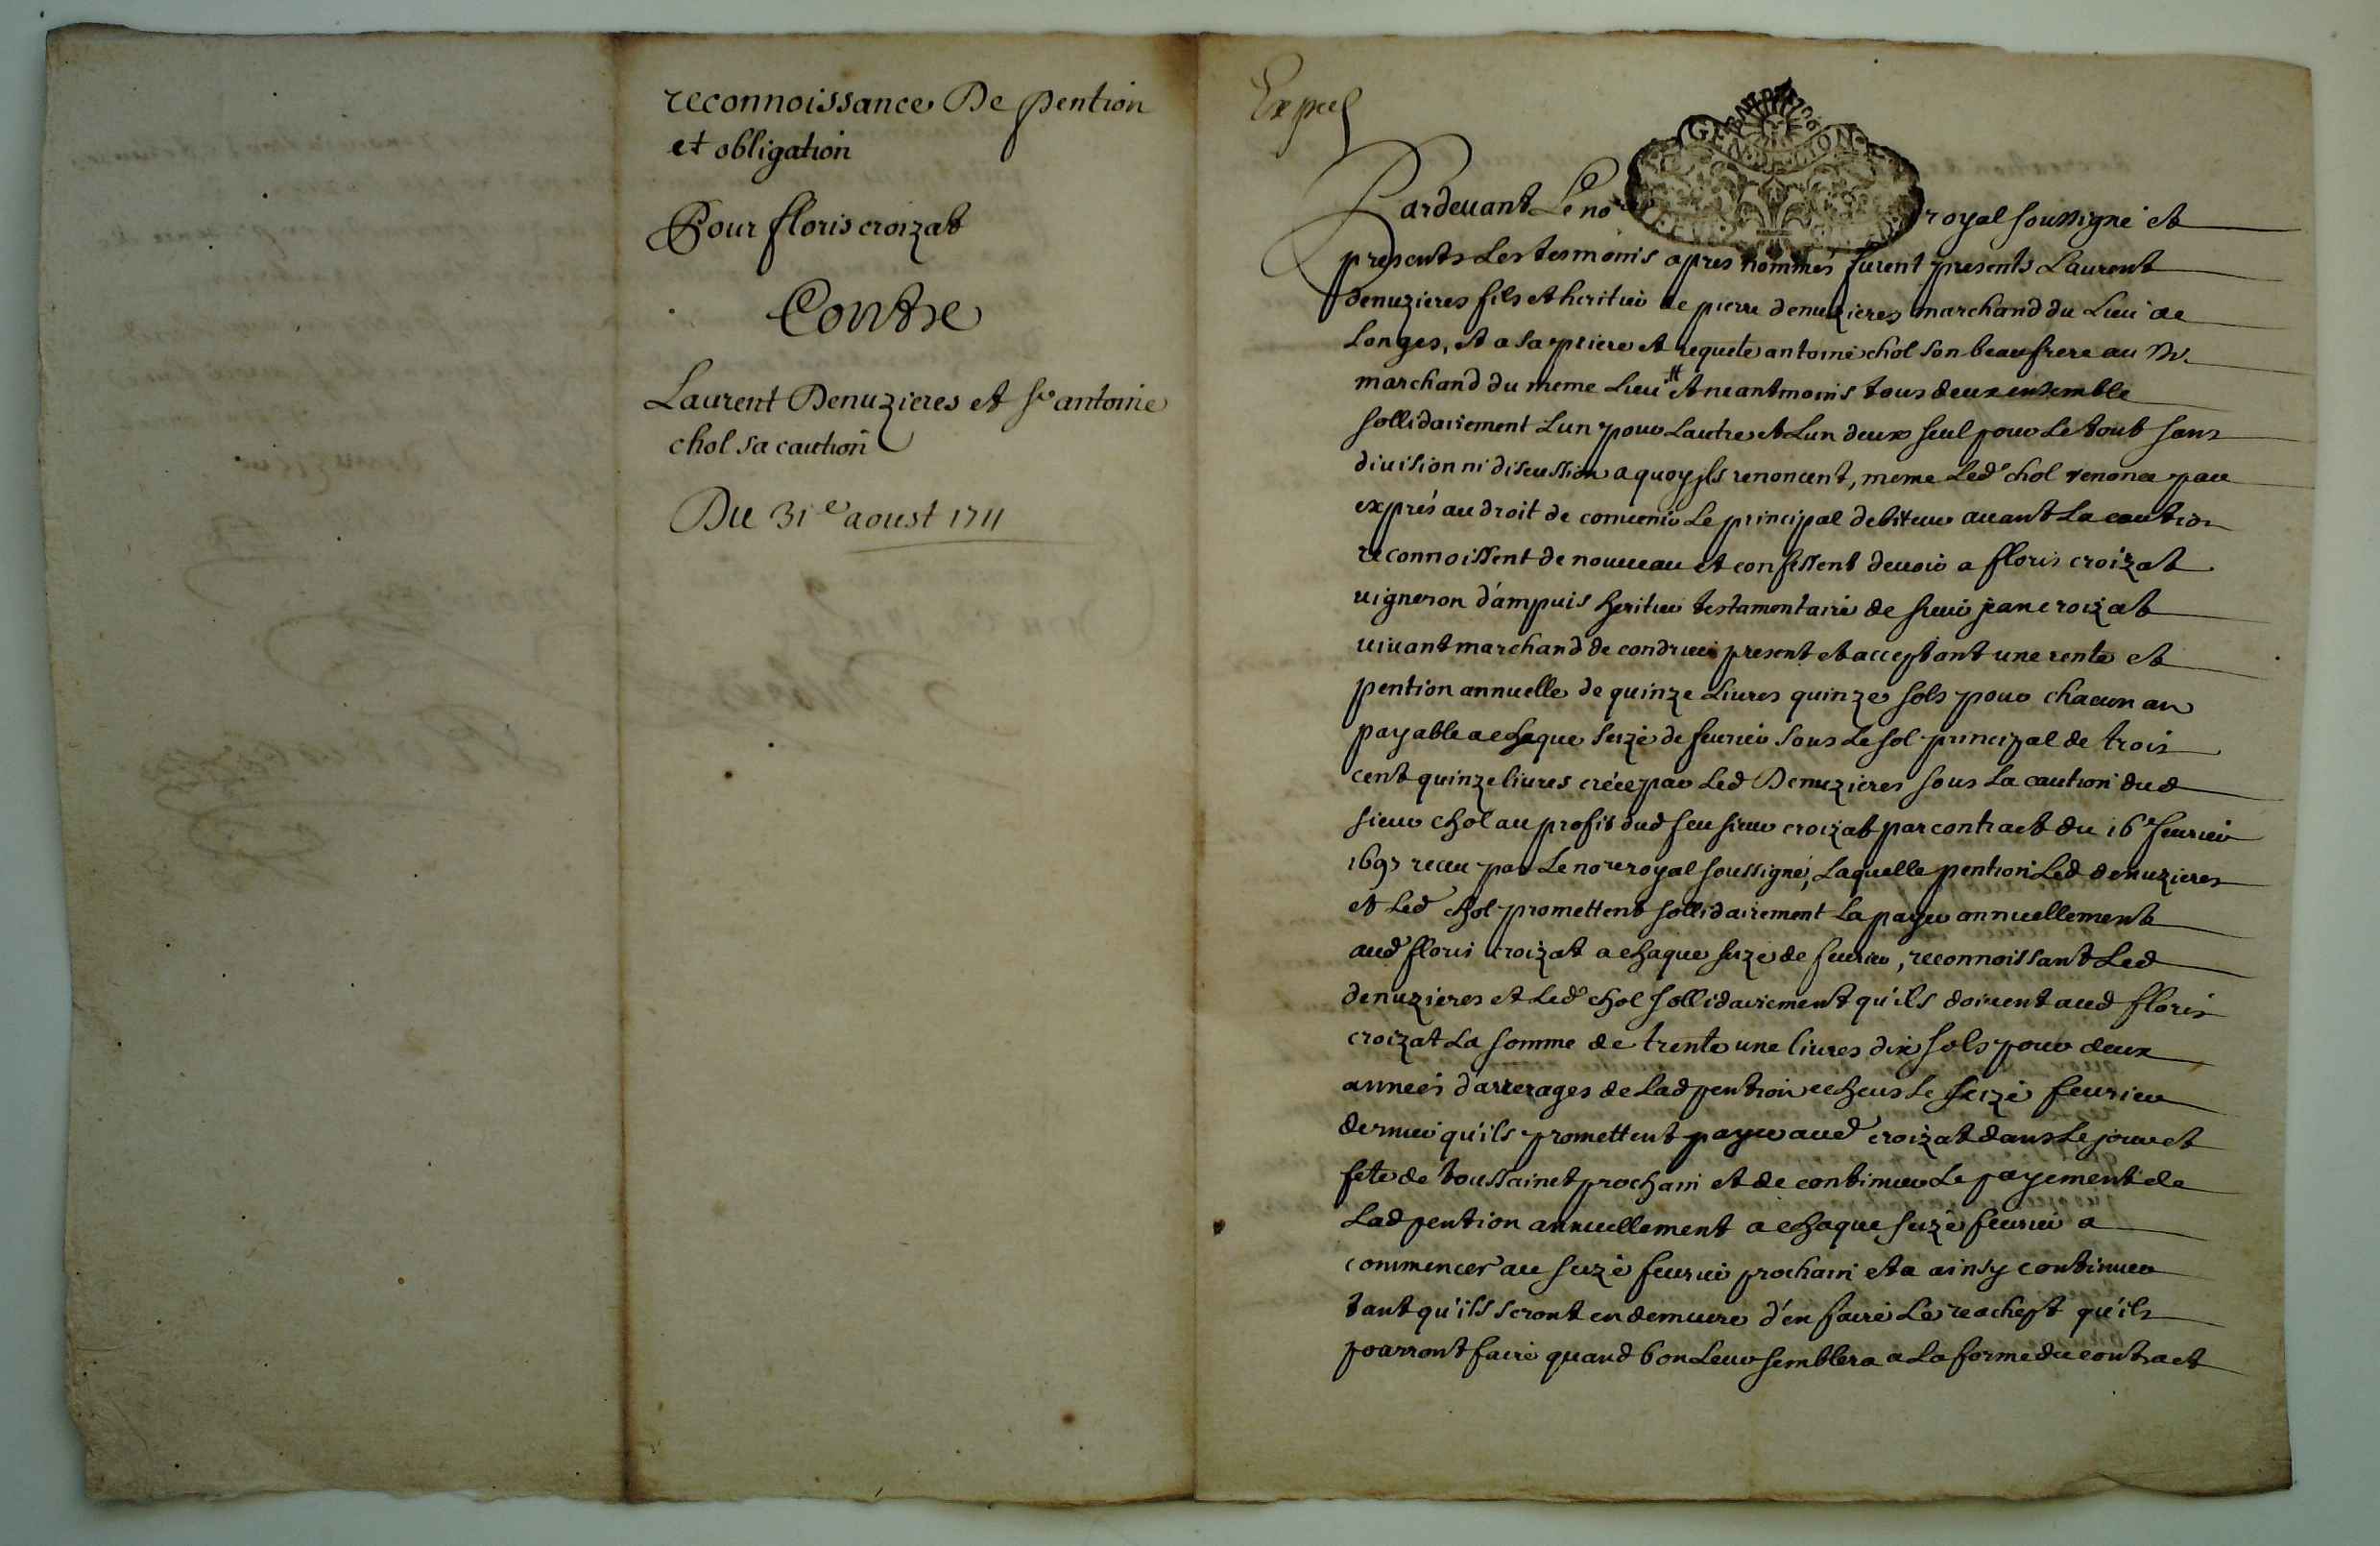 reconnoissance De pention
et obligation
Pour floris croizat
Contre
Laurent Denuzieres et Sr antoine
chol sa caution
Du 31e aoust 1711
Expéé
GENERATION
Pardevant Le no royal soussigné et
presents Les tesmoins apres nommés furent presents Laurent
denuzieres fils et heritier de pierre denuzieres marchand du Lieu de
Longes, et a sa priere et requete antoine chol son beaufrere au
marchand du meme Lieu et neantmoins tous deux ensemble
sollidairement Lun pour Lautre et Lun deux seul pour Le tout sans
diuision ni discussion a quoy ils renoncent, meme Led chol renonce par
exprés au droit de conuenir Le principal debiteur auant La caution
reconnoissent de nouueau et confessent deuoir a floris croizat
uigneron d'ampuis heritier testamentaire de sieur jean croizat
uiuant marchand de condrieu present et acceptant une rente et
pention annuelle de quinze Liures quinze sols pour chacun an
payable a chaque seize de feurier sous Le sol principal de trois
cent quinze liures créée par Led Denuzieres sous La caution dud
sieur chol au profit dud feu sieur croizat par contract du 16e feurier
1697 receu par Le nore royal soussigné, Laquelle pention Led denuzieres
et Led chol promettent sollidairement La payer annuellement
aud floris croizat a chaque seize de feurier, reconnoissant Led
denuzieres et Led chol sollidairement qu'ils doiuent aud floris
croizat La somme de trente une liures dix sols pour deux
années d'arrerages de Lad pention echeus Le seize feurier
dernier qu'ils promettent payer aud croizat dans Le jour et
fete de toussainct prochain et de continuer Le payement de
Lad pention annuellement a chaque seize feurier a
commencer au seize feurier prochain et a ainsy continuer
tant qu'ils seront en demeure d'en faire Le reachept qu'ils
pourront faire quand bon Leur semblera a La forme du contract